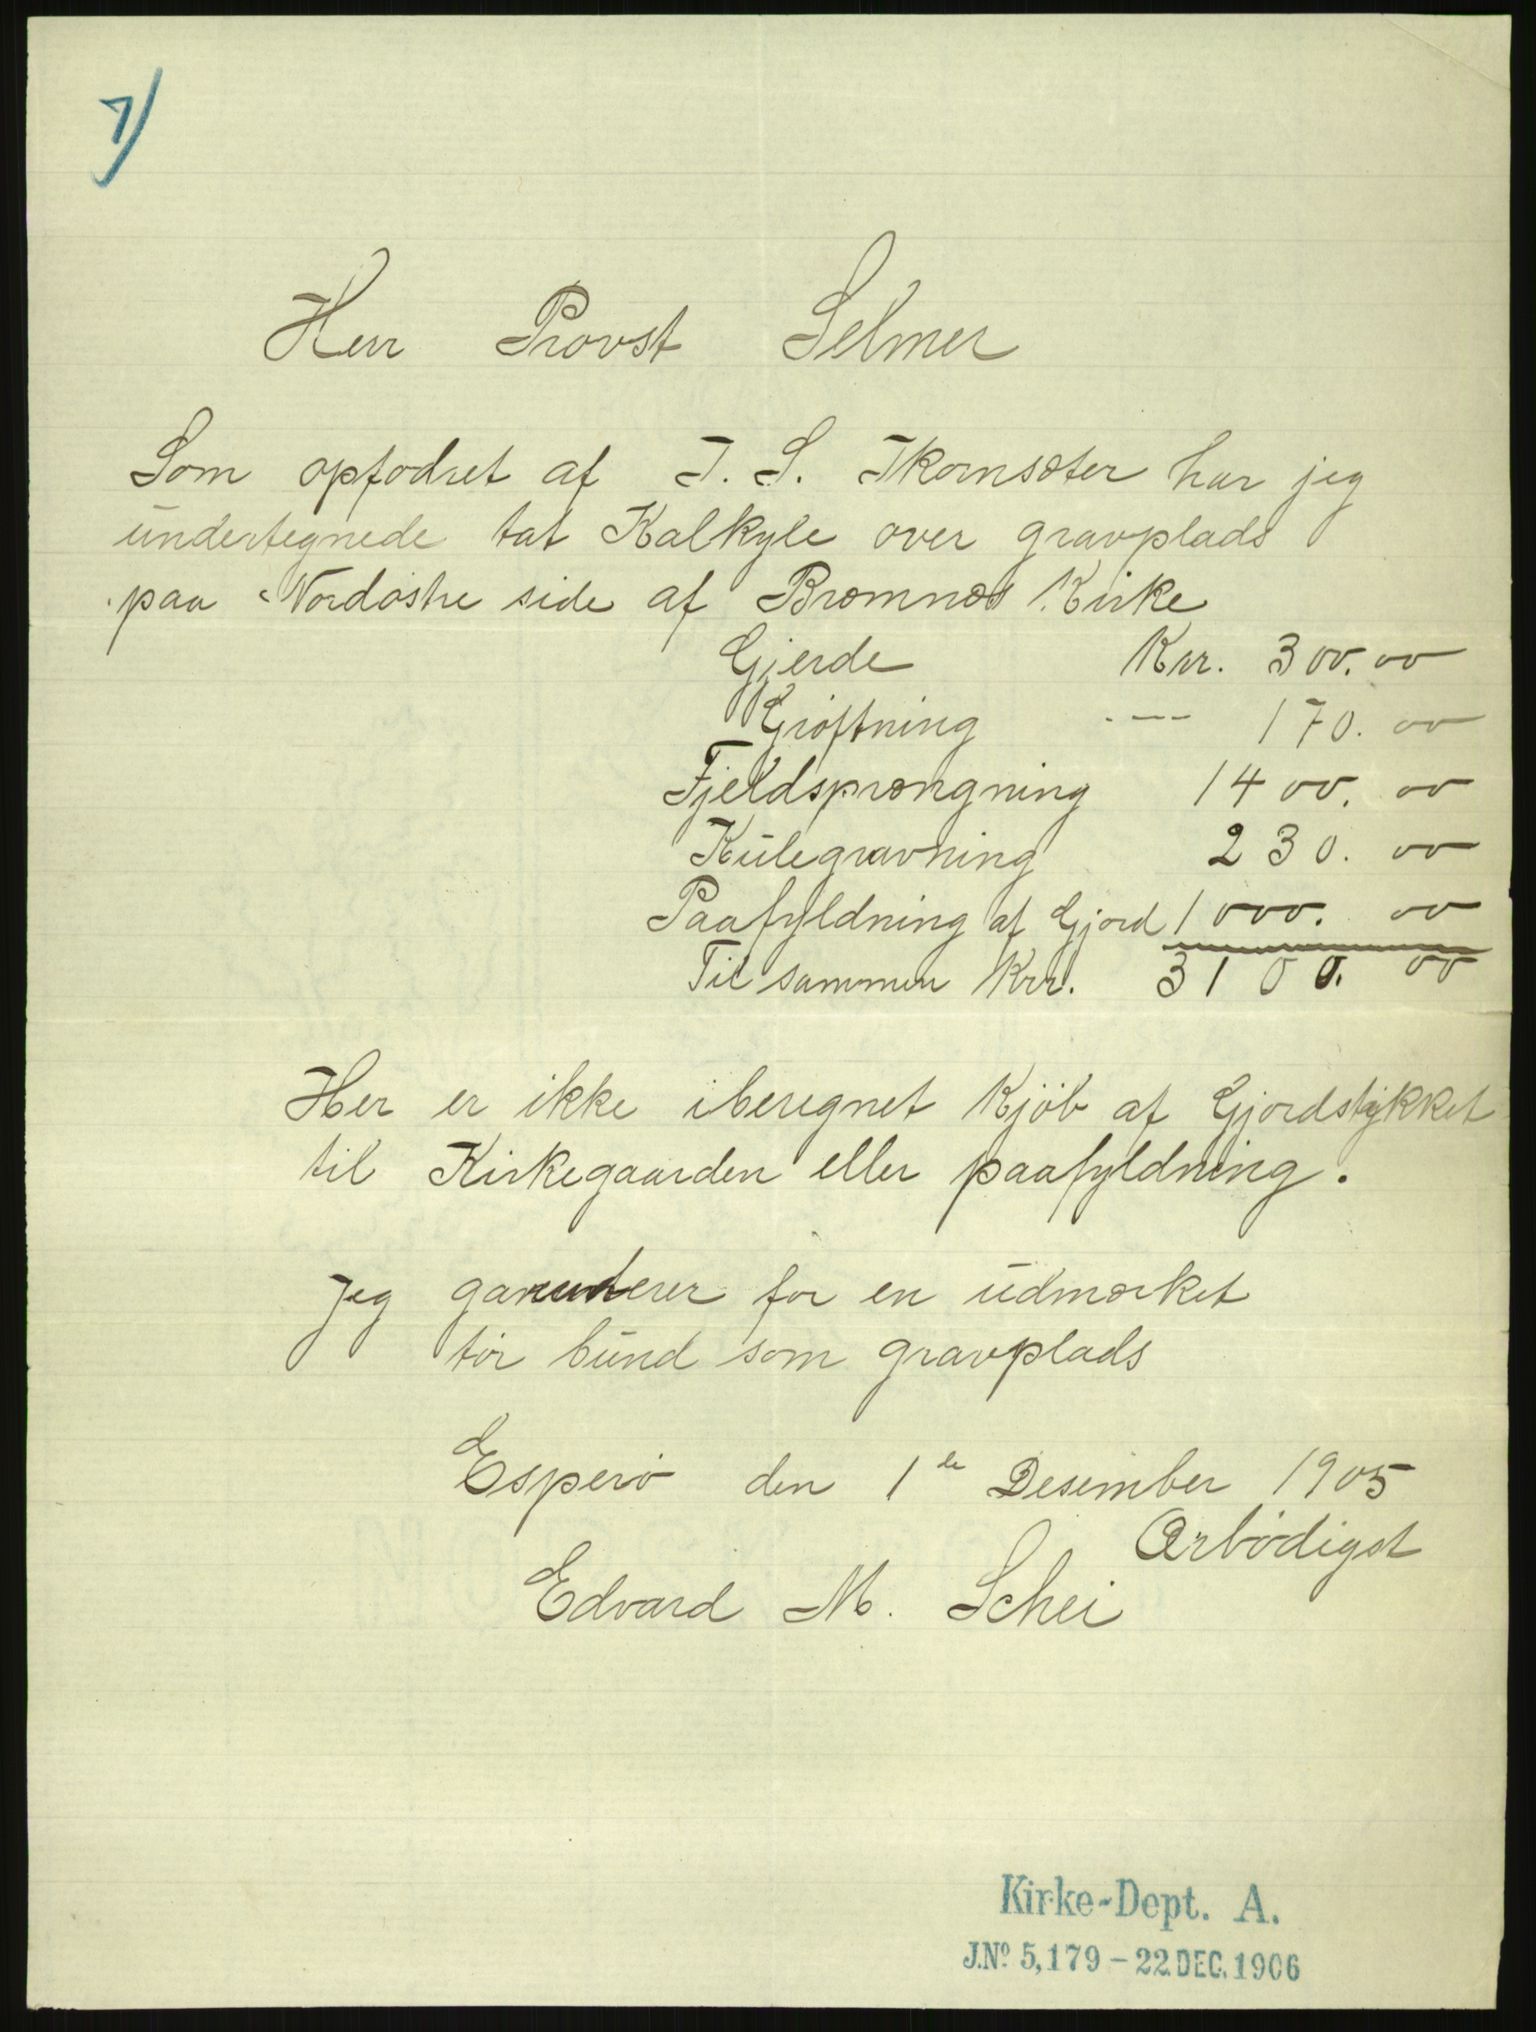 7)
Herr Provst Selmer
Som opfodret af J. S. Skornsæter har jeg
undertegnede tat Kalkyle over gravplads
paa Nordøstre side af Bremnæs Kirke
Gjerde Krr. 300.00
Grøftning --- 170.00
Fjeldsprængning 1400.00
Kulegravning 230.00
Paafyldning af Gjord 1000.00
Til sammen Krr. 3100.00
Her er ikke iberegnet Kjöb af Gjordstykket
til Kirkegaarden eller paafyldning.
Jeg garenterer for en udmærket
tör bund som gravplads
Esperö den 1te Desember 1905
Ærbödigst
Edvard M. Schei
Kirke-Dept. A.
J.Nº 5,179 - 22.DEC.1906